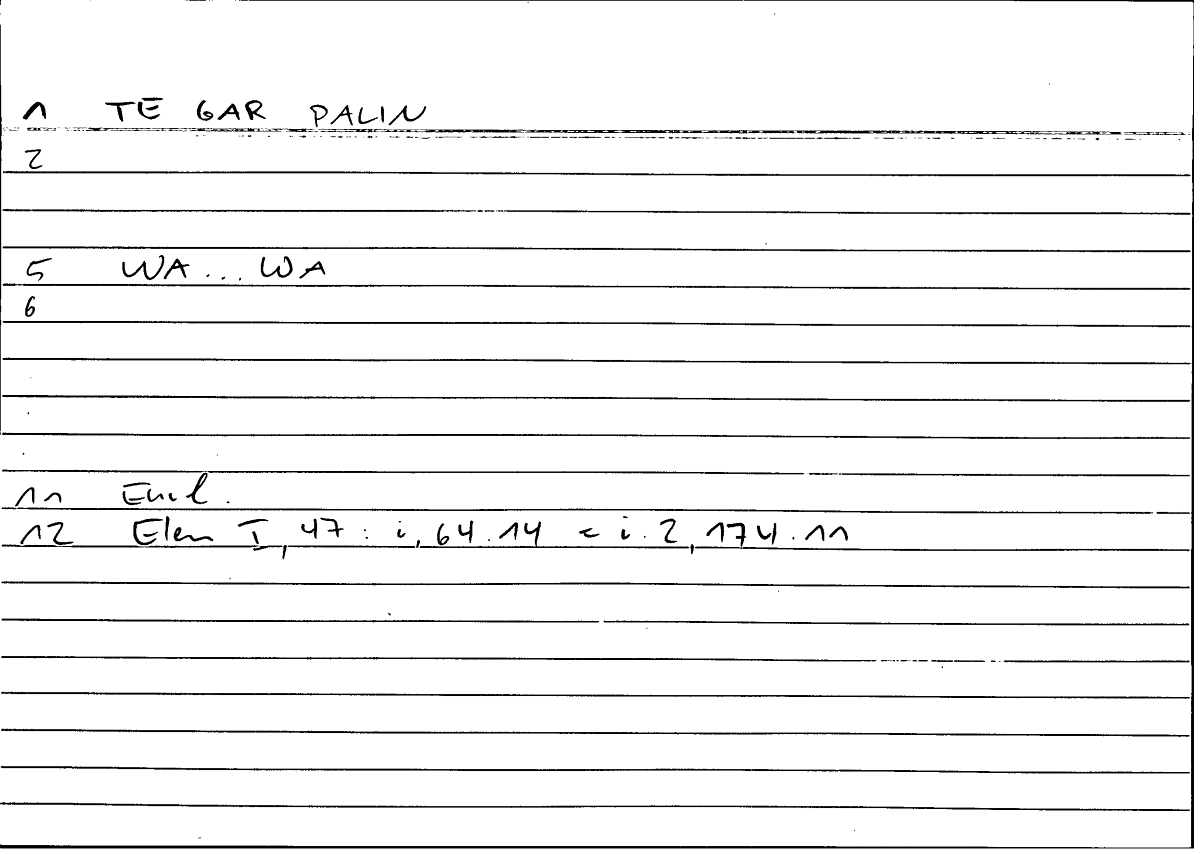 1 TE GAR PALIN
2
5 WA... WA
6
11 Eucl.
12 Elem I, 47: i, 64.14 = i.2, 174.11